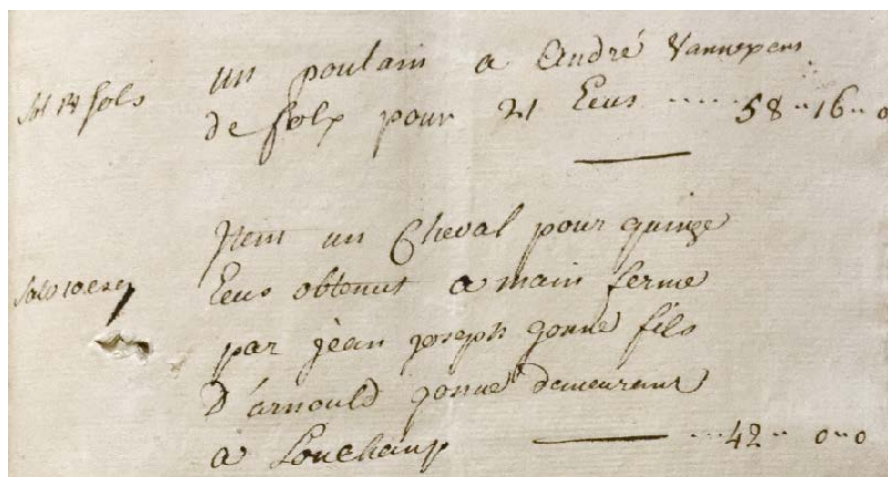 un poulain a André Vannepens
sols
de folx pour 21 Ecus ..... 58 .. 16 .. 0
Item un Cheval pour quinze
Ecus obtenut a main ferme
par jèan joseph gonne fils
D'arnould gonne demeurant
a Louchamp ——— ... 42 .. 0 .. 0